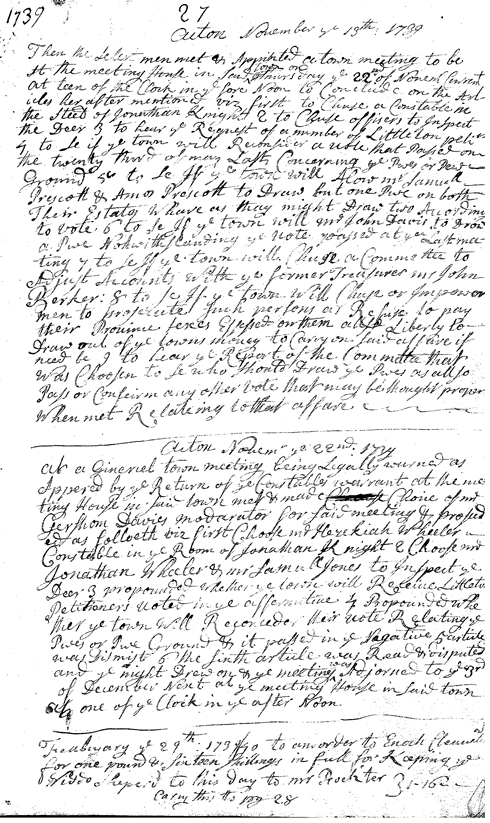 1739
27
Acton November ye 13th: 1739
Then the Select men met & Appointed a town meeting to be
at the meeting House in said town on thursday ye 22nd of Novem Current
at teen of the Clock in ye fore Noon to Conclude on the Arti
icles her after mentioned viz first to Chuse a Constable in
the Steed of Jonathan Knight 2 to Chuse officers to Inspect
the Deer 3 to hear ye Request of a number of Littleton peti
4 to se if ye town will Reconsier a vote that Passed on
the twenty third of may Last Concerning ye Pwes or Pwe
Ground 5 to se If ye town will Alow mr Samuell
Prescott & Amos Prescott to Draw but one Pwe on both
Their Estats Where as thay might Draw two Acording
to vote 6 to se If ye town will mr John Davis to Draw
a Pwe Notwithstanding ye vote passed at ye Last mee
ting 7 to se If ye town will Chuse a Committe to
Adjust Accounts With ye former Treasurer mr John
Berker: 8 to se If ye town Will Chuse or Impower
men to prosecute such persons as Refuse to pay
their Province Texes Essesed on them also Liberty to
Draw out of ye towns money to Carry on said affare if
need be 9 to hear ye Report of the Committe that
Was Choosen to se who Should Draw ye Pwes as also
Pass or Confirm any other vote that may be thought proper
When met Relateing to that affare
Acton Novemr ye 22nd 1739
at a Gineriel town meeting being Legally warned as
Appered by ye Return of ye Constables warrant at the mee
ting House in said town met & made Choice of mr
Gershom Davies modarator for said meeting & prosed
ed as folloeth viz first Choose mr Hezekiah Wheeler
Constable in ye Room of Jonathan Knight 2 Choose mr
Jonathan Wheeler & mr Samuel Jones to Inspect ye
Deer 3 propounded Whether ye town will Receive Littleton
Petitioners Voted in ye affermitive 4 Propounded Whe
ther ye town Will Reconceder their Vote Relating ye
Pwes or Pwe Ground & it passed in ye Negative 5 article
was Dismist 6 the sixth article was Read & disputed
and ye might Draw on & ye meeting was Adjorned to ye 3rd
of December Next at ye meeting House in said town
at one of ye Clock in ye after Noon
Feabuary ye 29th 1739/40 to an order to Enoch Cleaveland
for one pound & sixteen shillings in full for Keeping ye
Widdo Sheperd to this day to mr Procter 31-16
Carry this to pag 28